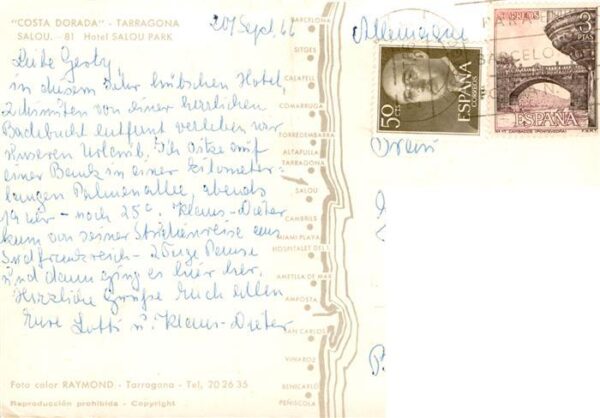 "COSTA DORADA" - TARRAGONA
SALOU. - 81 Hotel SALOU PARK
20/Sept. 66
Liebe Gerty
in diesem sehr hübschen Hotel,
2 Minuten von einer herrlichen
Badebucht entfernt verleben wir
unseren Urlaub. Ich sitze auf
einer Bank in einer kilometer-
langen Palmenallee, abends
19 Uhr - noch 25°. Klaus-Dieter
kam von seiner Studienreise aus
Südfrankreich - 2 Tage Pause
und dann ging es hier her.
Herzliche Grüße Euch allen
Eure Lotti u. Klaus-Dieter
Foto color RAYMOND - Tarragona - Tel, 20 26 35
Reproducción prohibida - Copyright
BARCELONA
SITGES
CALAFELL
COMARRUGA
TORREDEMBARRA
ALTAFULLA
TARRAGONA
SALOU
CAMBRILS
MIAMI PLAYA
HOSPITALET DEL I.
AMETLLA DE MAR
AMPOSTA
SAN CARLOS
VINAROZ
BENICARLÓ
PEÑISCOLA
Allemagne
50 CTS
ESPAÑA
CORREOS
CORREOS 3 PTAS
ESPAÑA
BARCELONA
Frau